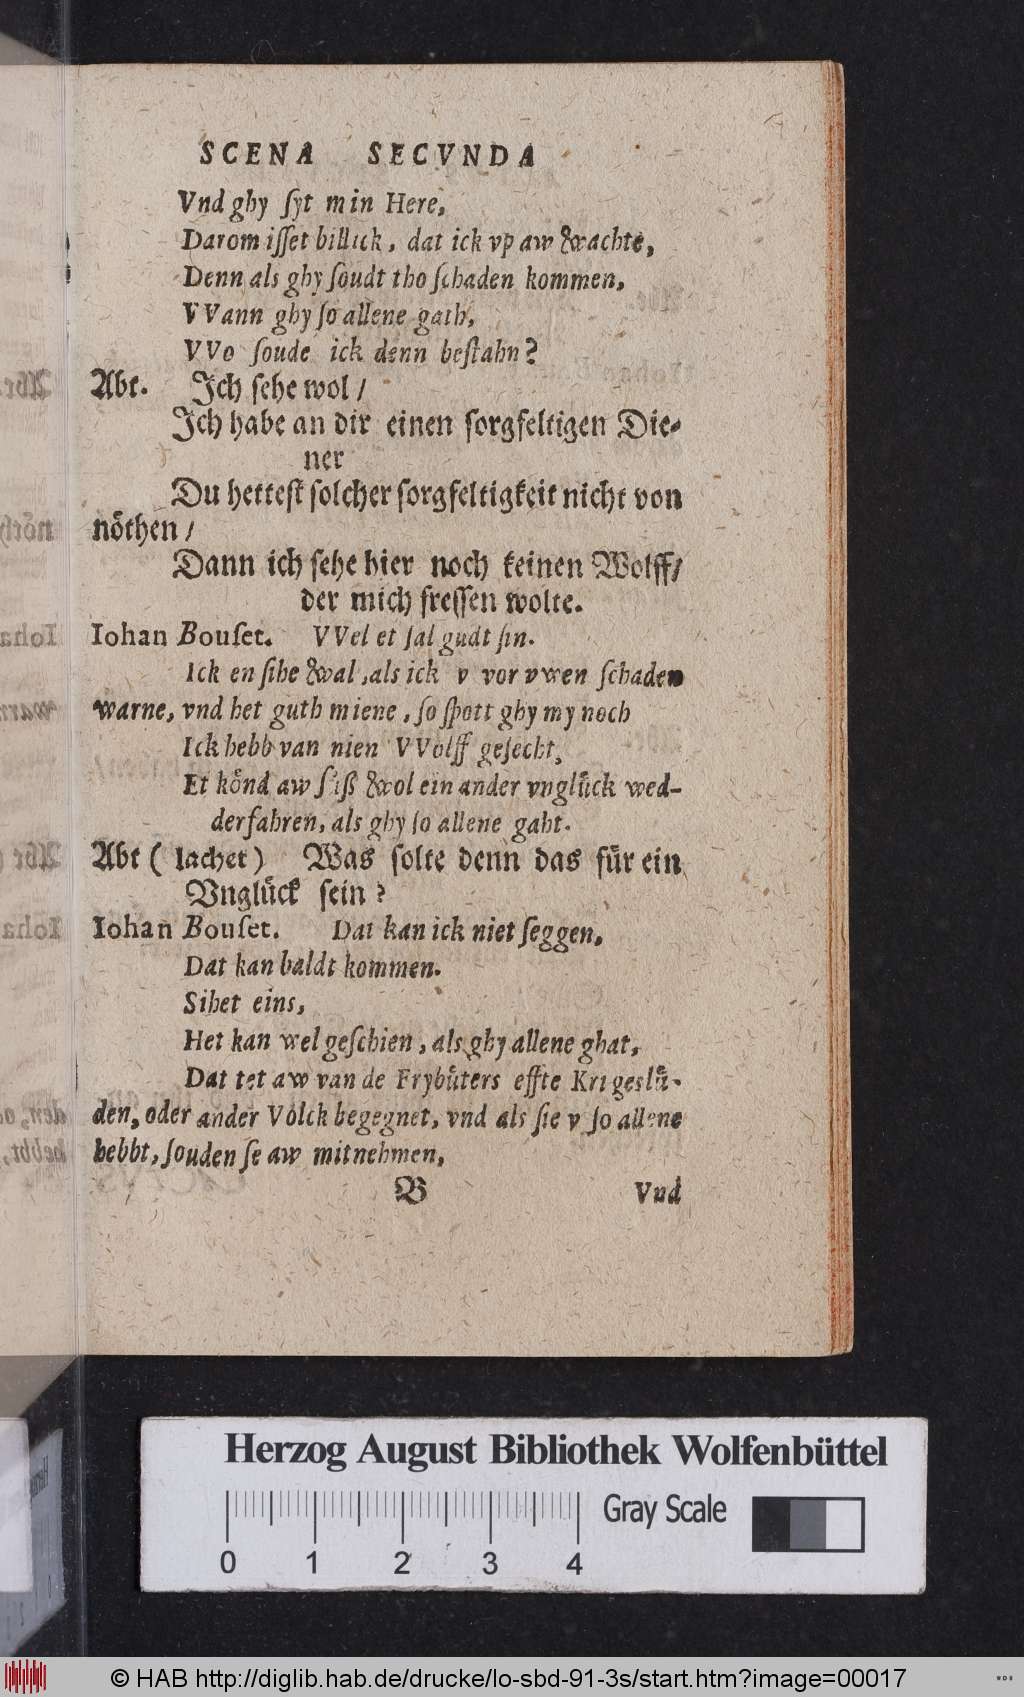 SCENA SECVNDA
Vnd ghy ſyt min Here,
Darom iſſet billick, dat ick vp aw wachte,
Denn als ghy ſoudt tho ſchaden kommen,
VVann ghy ſo allene gath,
VVo ſoude ick denn beſtahn?
Abt. Ich ſehe wol /
Ich habe an dir einen ſorgfeltigen Die-
ner
Du hetteſt ſolcher ſorgfeltigkeit nicht von
nöthen /
Dann ich ſehe hier noch keinen Wolff /
der mich freſſen wolte.
Iohan Bouſet. VVel et ſal gudt ſin.
Ick en ſihe wal, als ick v vor vwen ſchaden
warne, vnd het guth miene, ſo ſpott ghy my noch
Ick hebb van nien VVolff geſecht,
Et könd aw ſiß wol ein ander vnglück wed-
derfahren, als ghy ſo allene gaht.
Abt ( lachet ) Was ſolte denn das für ein
Vnglück ſein?
Iohan Bouſet. Dat kan ick niet ſeggen,
Dat kan baldt kommen.
Sihet eins,
Het kan wel geſchien, als ghy allene ghat,
Dat tet aw van de Frybüters effte Krigeslü-
den, oder ander Volck begegnet, vnd als ſie v ſo allene
hebbt, ſouden ſe aw mitnehmen,
B Vnd
Herzog August Bibliothek Wolfenbüttel
Gray Scale
0 1 2 3 4
© HAB http://diglib.hab.de/drucke/lo-sbd-91-3s/start.htm?image=00017